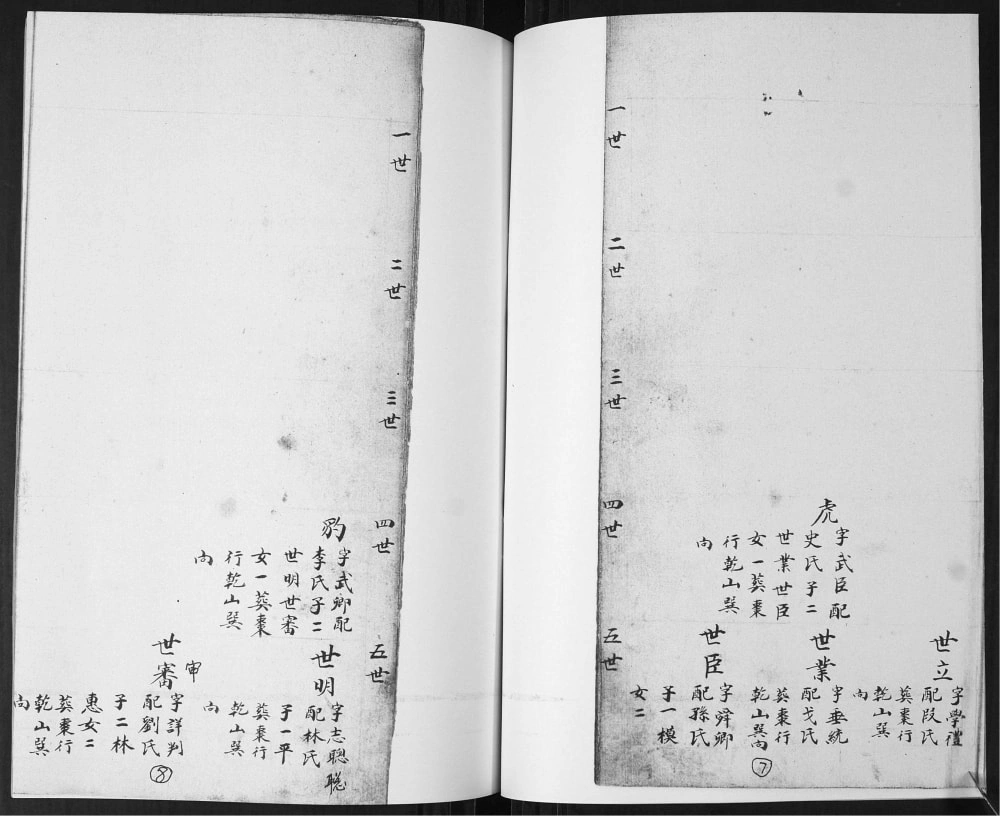 一世
二世
三世
四世
五世
虎
字武臣配
史氏子二
世業世臣
女一葬棗
行乾山巽
向
世立
字學禮
配段氏
葬棗行
乾山巽
向
世業
字垂統
配戈氏
葬棗行
乾山巽向
世臣
字舜卿
配孫氏
子一模
女二
⑦
一世
二世
三世
四世
五世
豹
字武卿配
李氏子二
世明世審
女一葬棗
行乾山巽
向
世明
字志聰聪
配林氏
子一平
葬棗行
乾山巽
向
世審
审
字詳判
配劉氏
子二林
惠女二
葬棗行
乾山巽
向
⑧